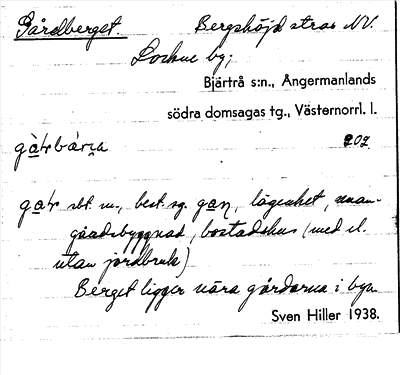 Gårdberget. Bergshöjd strax NV.
Lockne by;
Bjärtrå s:n., Ångermanlands
södra domsagas tg., Västernorrl. l.
207
gatr sbt. m., best. sg. gan, lägenhet, man-
gårdsbyggnad, bostadshus (med el.
utan jordbruk)
Berget ligger nära gårdarna i byn.
Sven Hiller 1938.